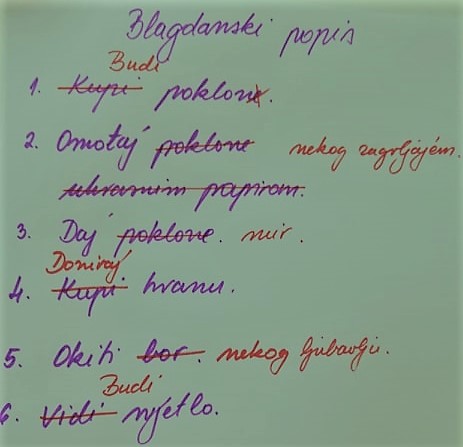 Blagdanski popis
Budi
1. Kupi poklone.
2. Omotaj poklone nekog zagrljajem.
ukrasnim papirom.
3. Daj poklone. mir.
Doniraj
4. Kupi hranu.
5. Okiti bor. nekog ljubavlju.
Budi
6. Vidi svjetlo.